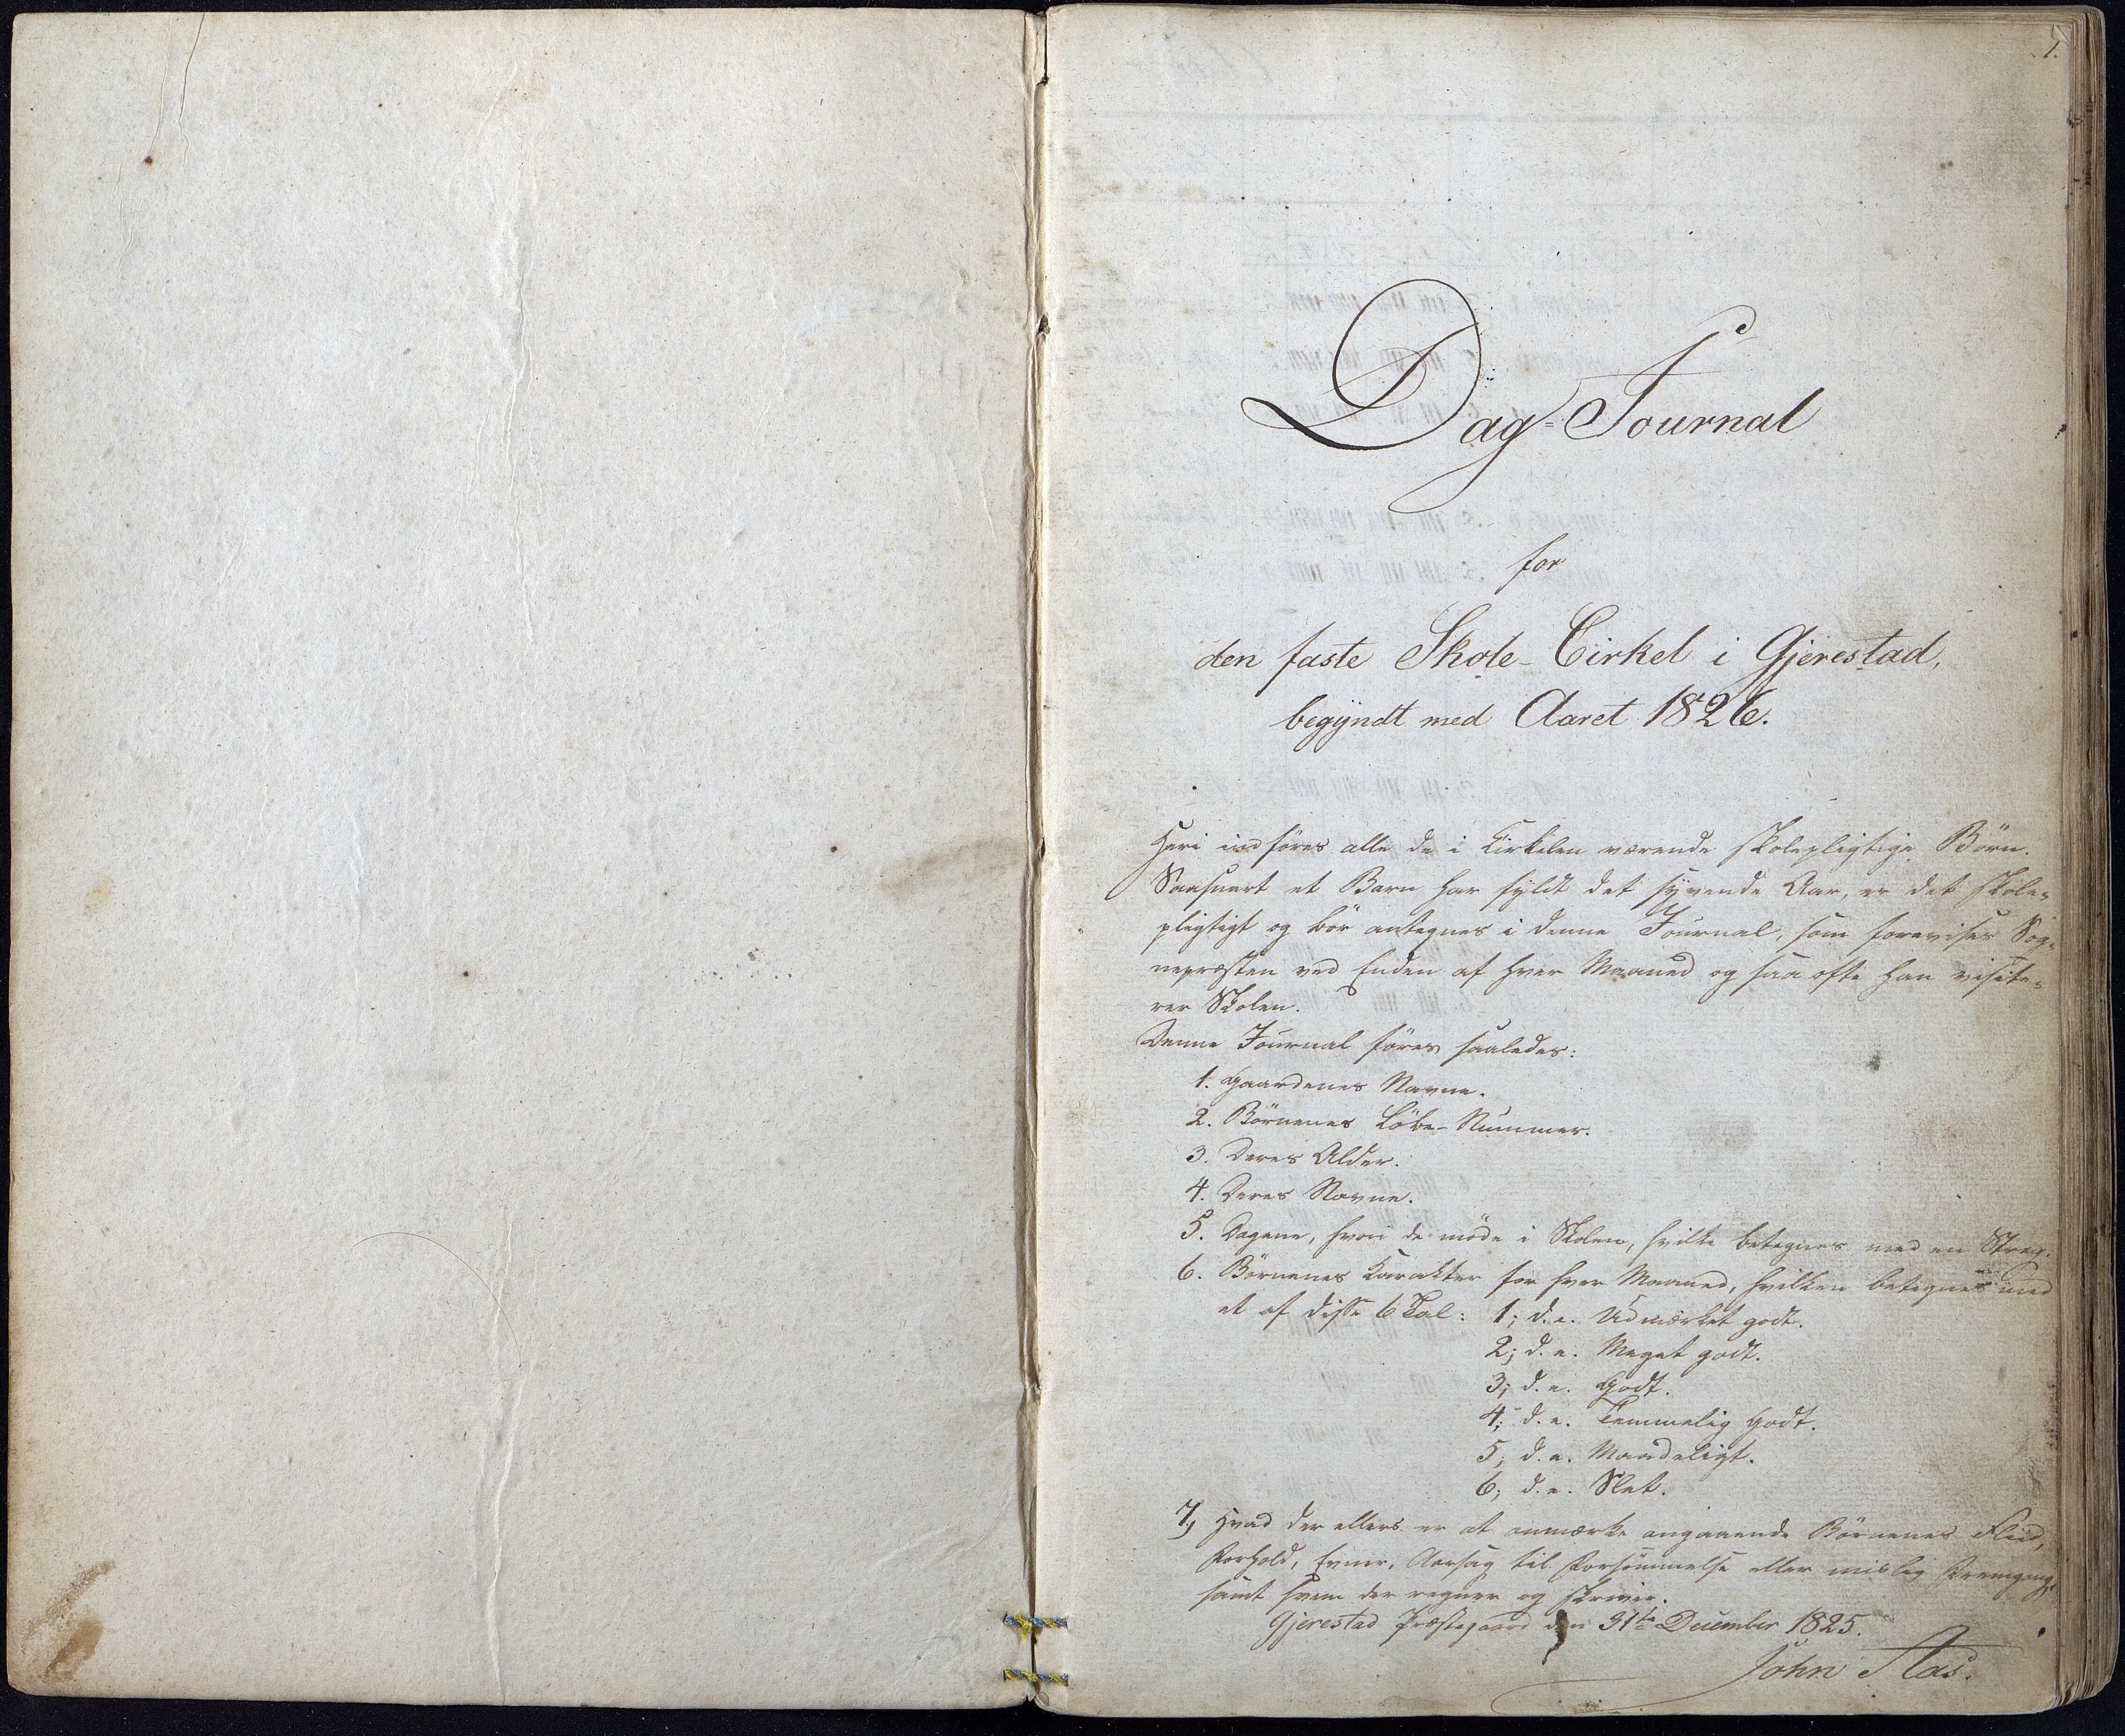 1.
Dag-Journal
for
den faste Skole-Cirkel i Gjerestad,
begyndt med Aaret 1826.
Heri indføres alle de i Cirkelen værende skolepligtige Börn.
Saasnart et Barn har fyldt det syvende Aar, er det skole-
pligtigt og bör antegnes i denne Journal, som forevises Sog-
nepræsten ved Enden af hver Maaned og saa ofte han visite-
rer Skolen.
Denne Journal föres saaledes:
1. Gaardenes Navne.
2. Börnenes Löbe-Nummer.
3. Deres Alder.
4. Deres Navne.
5. Dagene, hvori de möde i Skolen, hvilke betegnes med en Streg.
6. Börnenes Karakter for hver Maaned, hvilken betegnes med
et af disse 6 Tal: 1; d. e. Udmærket godt.
2; d. e. Meget godt.
3; d. e. Godt.
4; d. e. Temmelig godt.
5; d. e. Maadeligt.
6; d. e. Slet.
7, Hvad der ellers er at anmærke angaaende Börnenes Fliid,
Forhold, Evner, Aarsag til Forsömmelse eller mislig Fremgang,
samt hvem der regner og skriver.
Gjerestad Præstegaard den 31te December 1825.
John Aas.